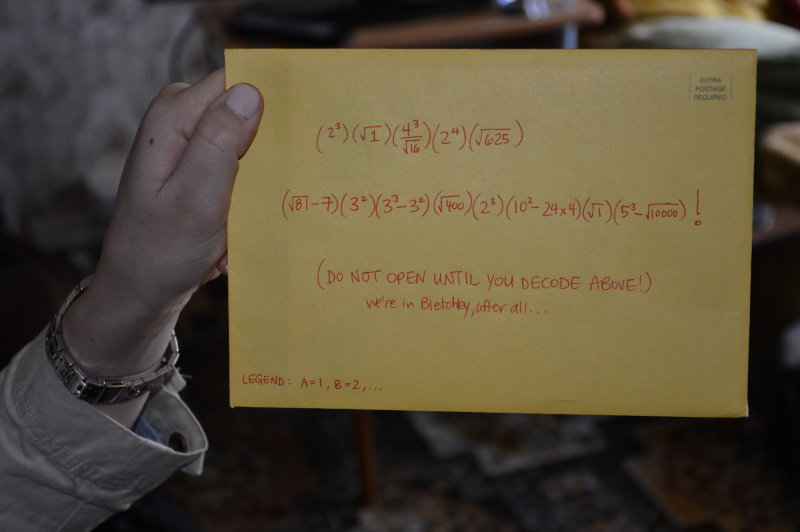 EXTRA
POSTAGE
REQUIRED
(2³)(√1)(4³/√16)(2⁴)(√625)
(√81-7)(3²)(3³-3²)(√400)(2³)(10²-24×4)(√1)(5³-√10000)!
(DO NOT OPEN UNTIL YOU DECODE ABOVE!)
we're in Bletchley, after all...
LEGEND: A=1, B=2,...